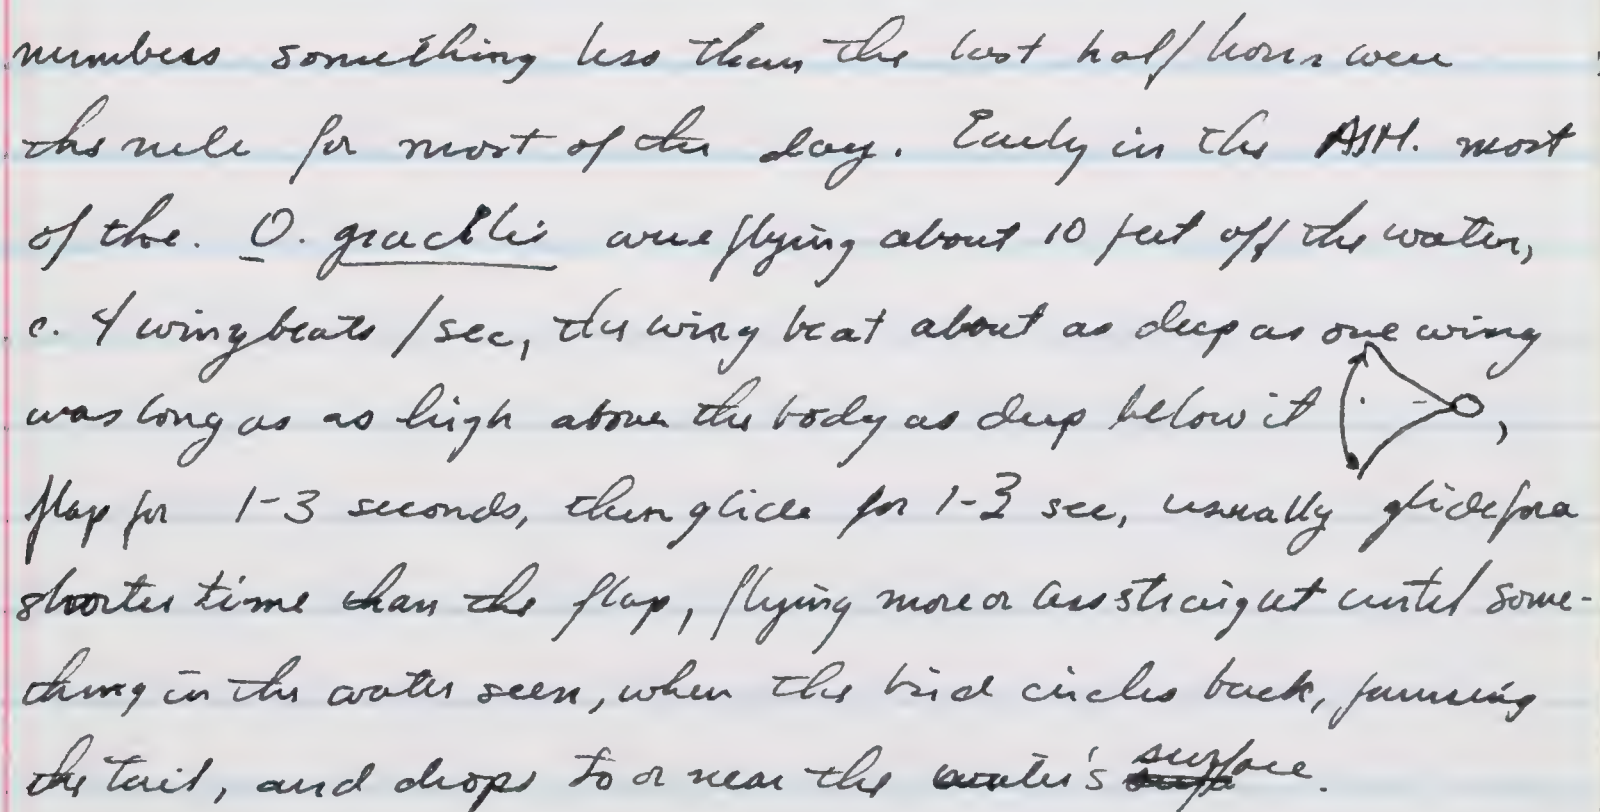 numbers something less than the last half hour were
the rule for most of the day. Early in the A.M. most
of the. O. gracilis were flying about 10 feet off the water,
c. 4 wingbeats / sec, the wing beat about as deep as one wing
was long as as high above the body as deep below it ,
flap for 1-3 seconds, then glide for 1-3 sec, usually glide for a
shorter time than the flap, flying more or less straight until some-
thing in the water seen, when the bird circles back,
the tail, and drops to or near the water's surface.